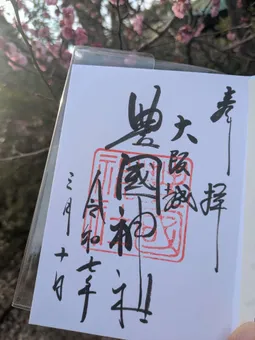 奉拝
大阪城
豊國神社
令和七年
三月十日